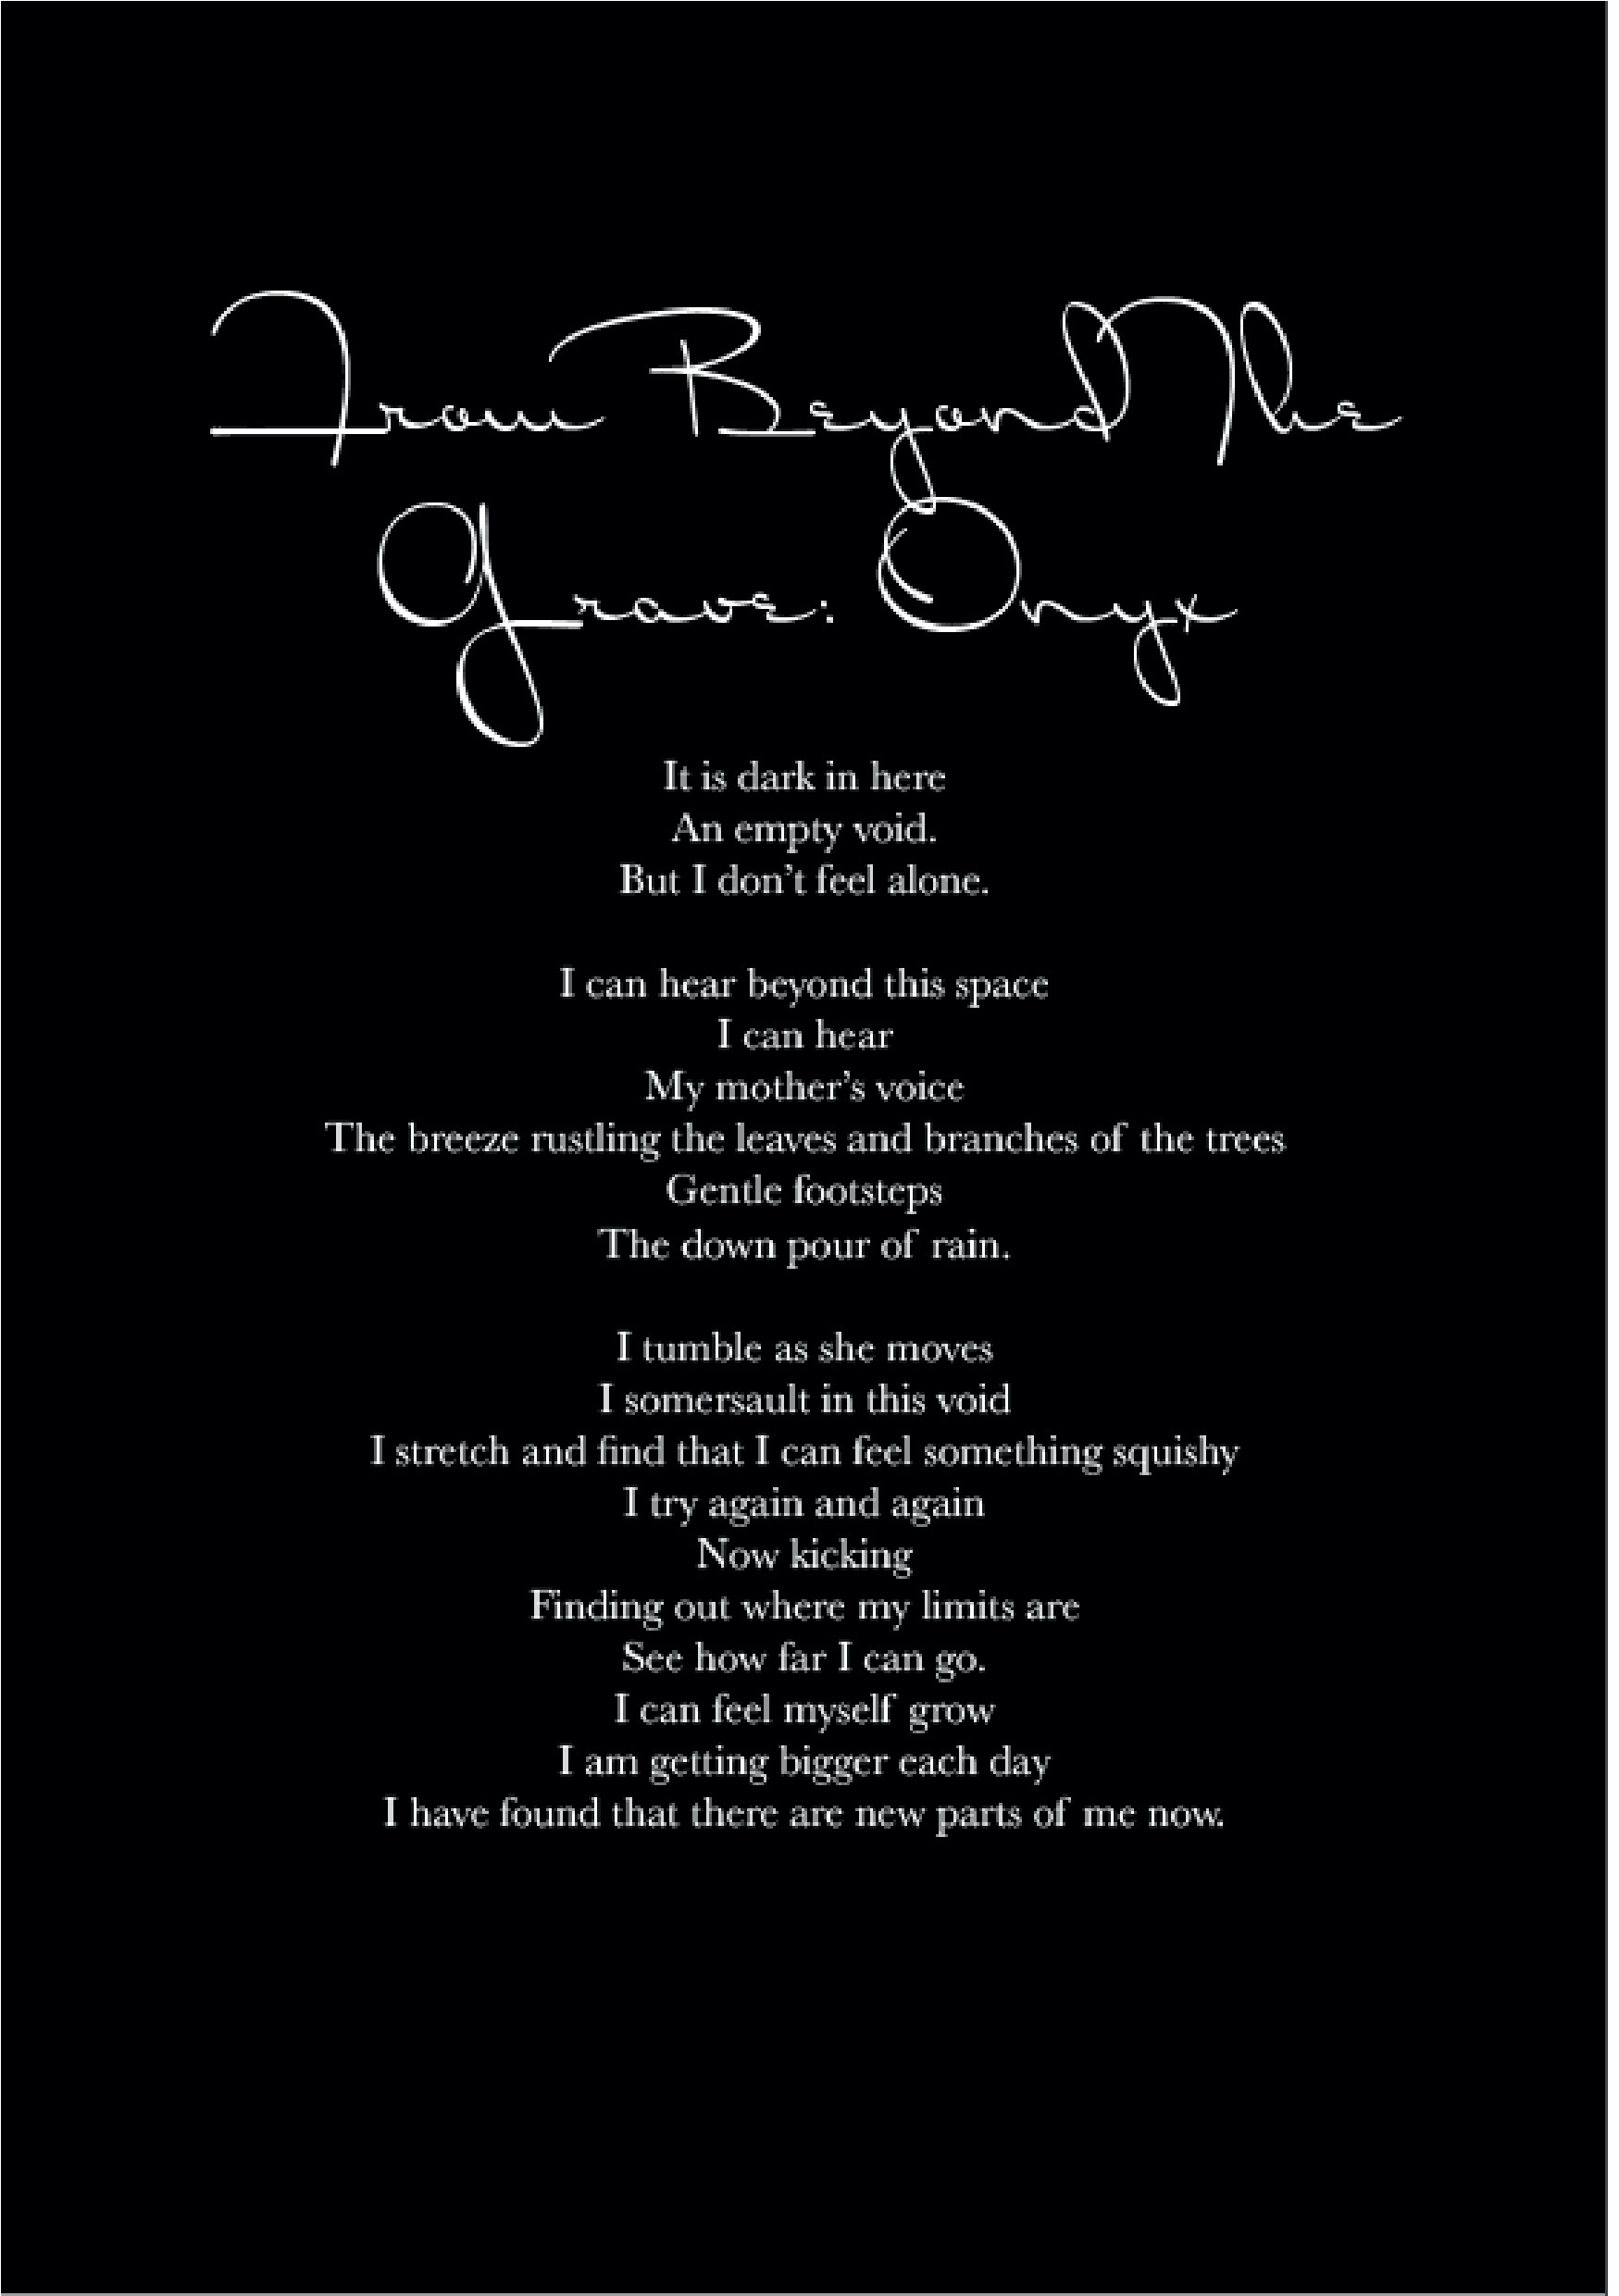 From Beyond The
Grave: Onyx
It is dark in here
An empty void.
But I don’t feel alone.
I can hear beyond this space
I can hear
My mother’s voice
The breeze rustling the leaves and branches of the trees
Gentle footsteps
The down pour of rain.
I tumble as she moves
I somersault in this void
I stretch and find that I can feel something squishy
I try again and again
Now kicking
Finding out where my limits are
See how far I can go.
I can feel myself grow
I am getting bigger each day
I have found that there are new parts of me now.